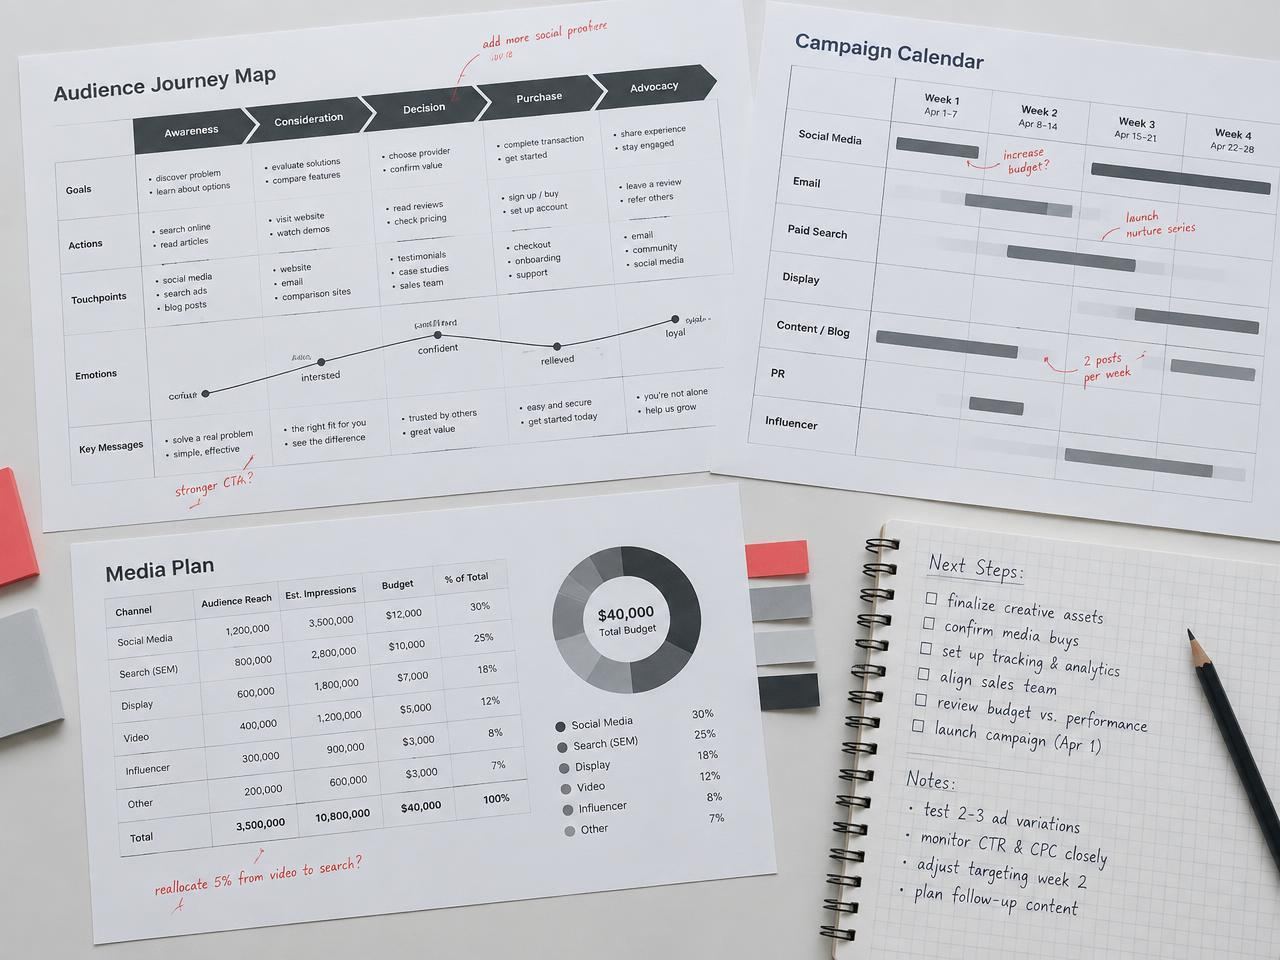 Audience Journey Map
add more social
Awareness
Consideration
Decision
Purchase
Advocacy
Goals
• discover problem
• learn about options
• evaluate solutions
• compare features
• choose provider
• confirm value
• complete transaction
• get started
• share experience
• stay engaged
Actions
• search online
• read articles
• visit website
• watch demos
• read reviews
• check pricing
• sign up / buy
• set up account
• leave a review
• refer others
Touchpoints
• social media
• search ads
• blog posts
• website
• email
• comparison sites
• testimonials
• case studies
• sales team
• checkout
• onboarding
• support
• email
• community
• social media
Emotions
intersted
confident
relleved
loyal
Key Messages
• solve a real problem
• simple, effective
• the right fit for you
• see the difference
• trusted by others
• great value
• easy and secure
• get started today
• you're not alone
• help us grow
stronger CTA?
Campaign Calendar
Week 1
Apr 1–7
Week 2
Apr 8–14
Week 3
Apr 15–21
Week 4
Apr 22–28
Social Media
increase
budget?
Email
launch
nurture series
Paid Search
Display
Content / Blog
2 posts
per week
PR
Influencer
Media Plan
Channel Audience Reach Est. Impressions Budget % of Total
Social Media 1,200,000 3,500,000 $12,000 30%
Search (SEM) 800,000 2,800,000 $10,000 25%
Display 600,000 1,800,000 $7,000 18%
Video 400,000 1,200,000 $5,000 12%
Influencer 300,000 900,000 $3,000 8%
Other 200,000 600,000 $3,000 7%
Total 3,500,000 10,800,000 $40,000 100%
reallocate 5% from video to search?
$40,000
Total Budget
Social Media 30%
Search (SEM) 25%
Display 18%
Video 12%
Influencer 8%
Other 7%
Next Steps:
☐ finalize creative assets
☐ confirm media buys
☐ set up tracking & analytics
☐ align sales team
☐ review budget vs. performance
☐ launch campaign (Apr 1)
Notes:
• test 2-3 ad variations
• monitor CTR & CPC closely
• adjust targeting week 2
• plan follow-up content